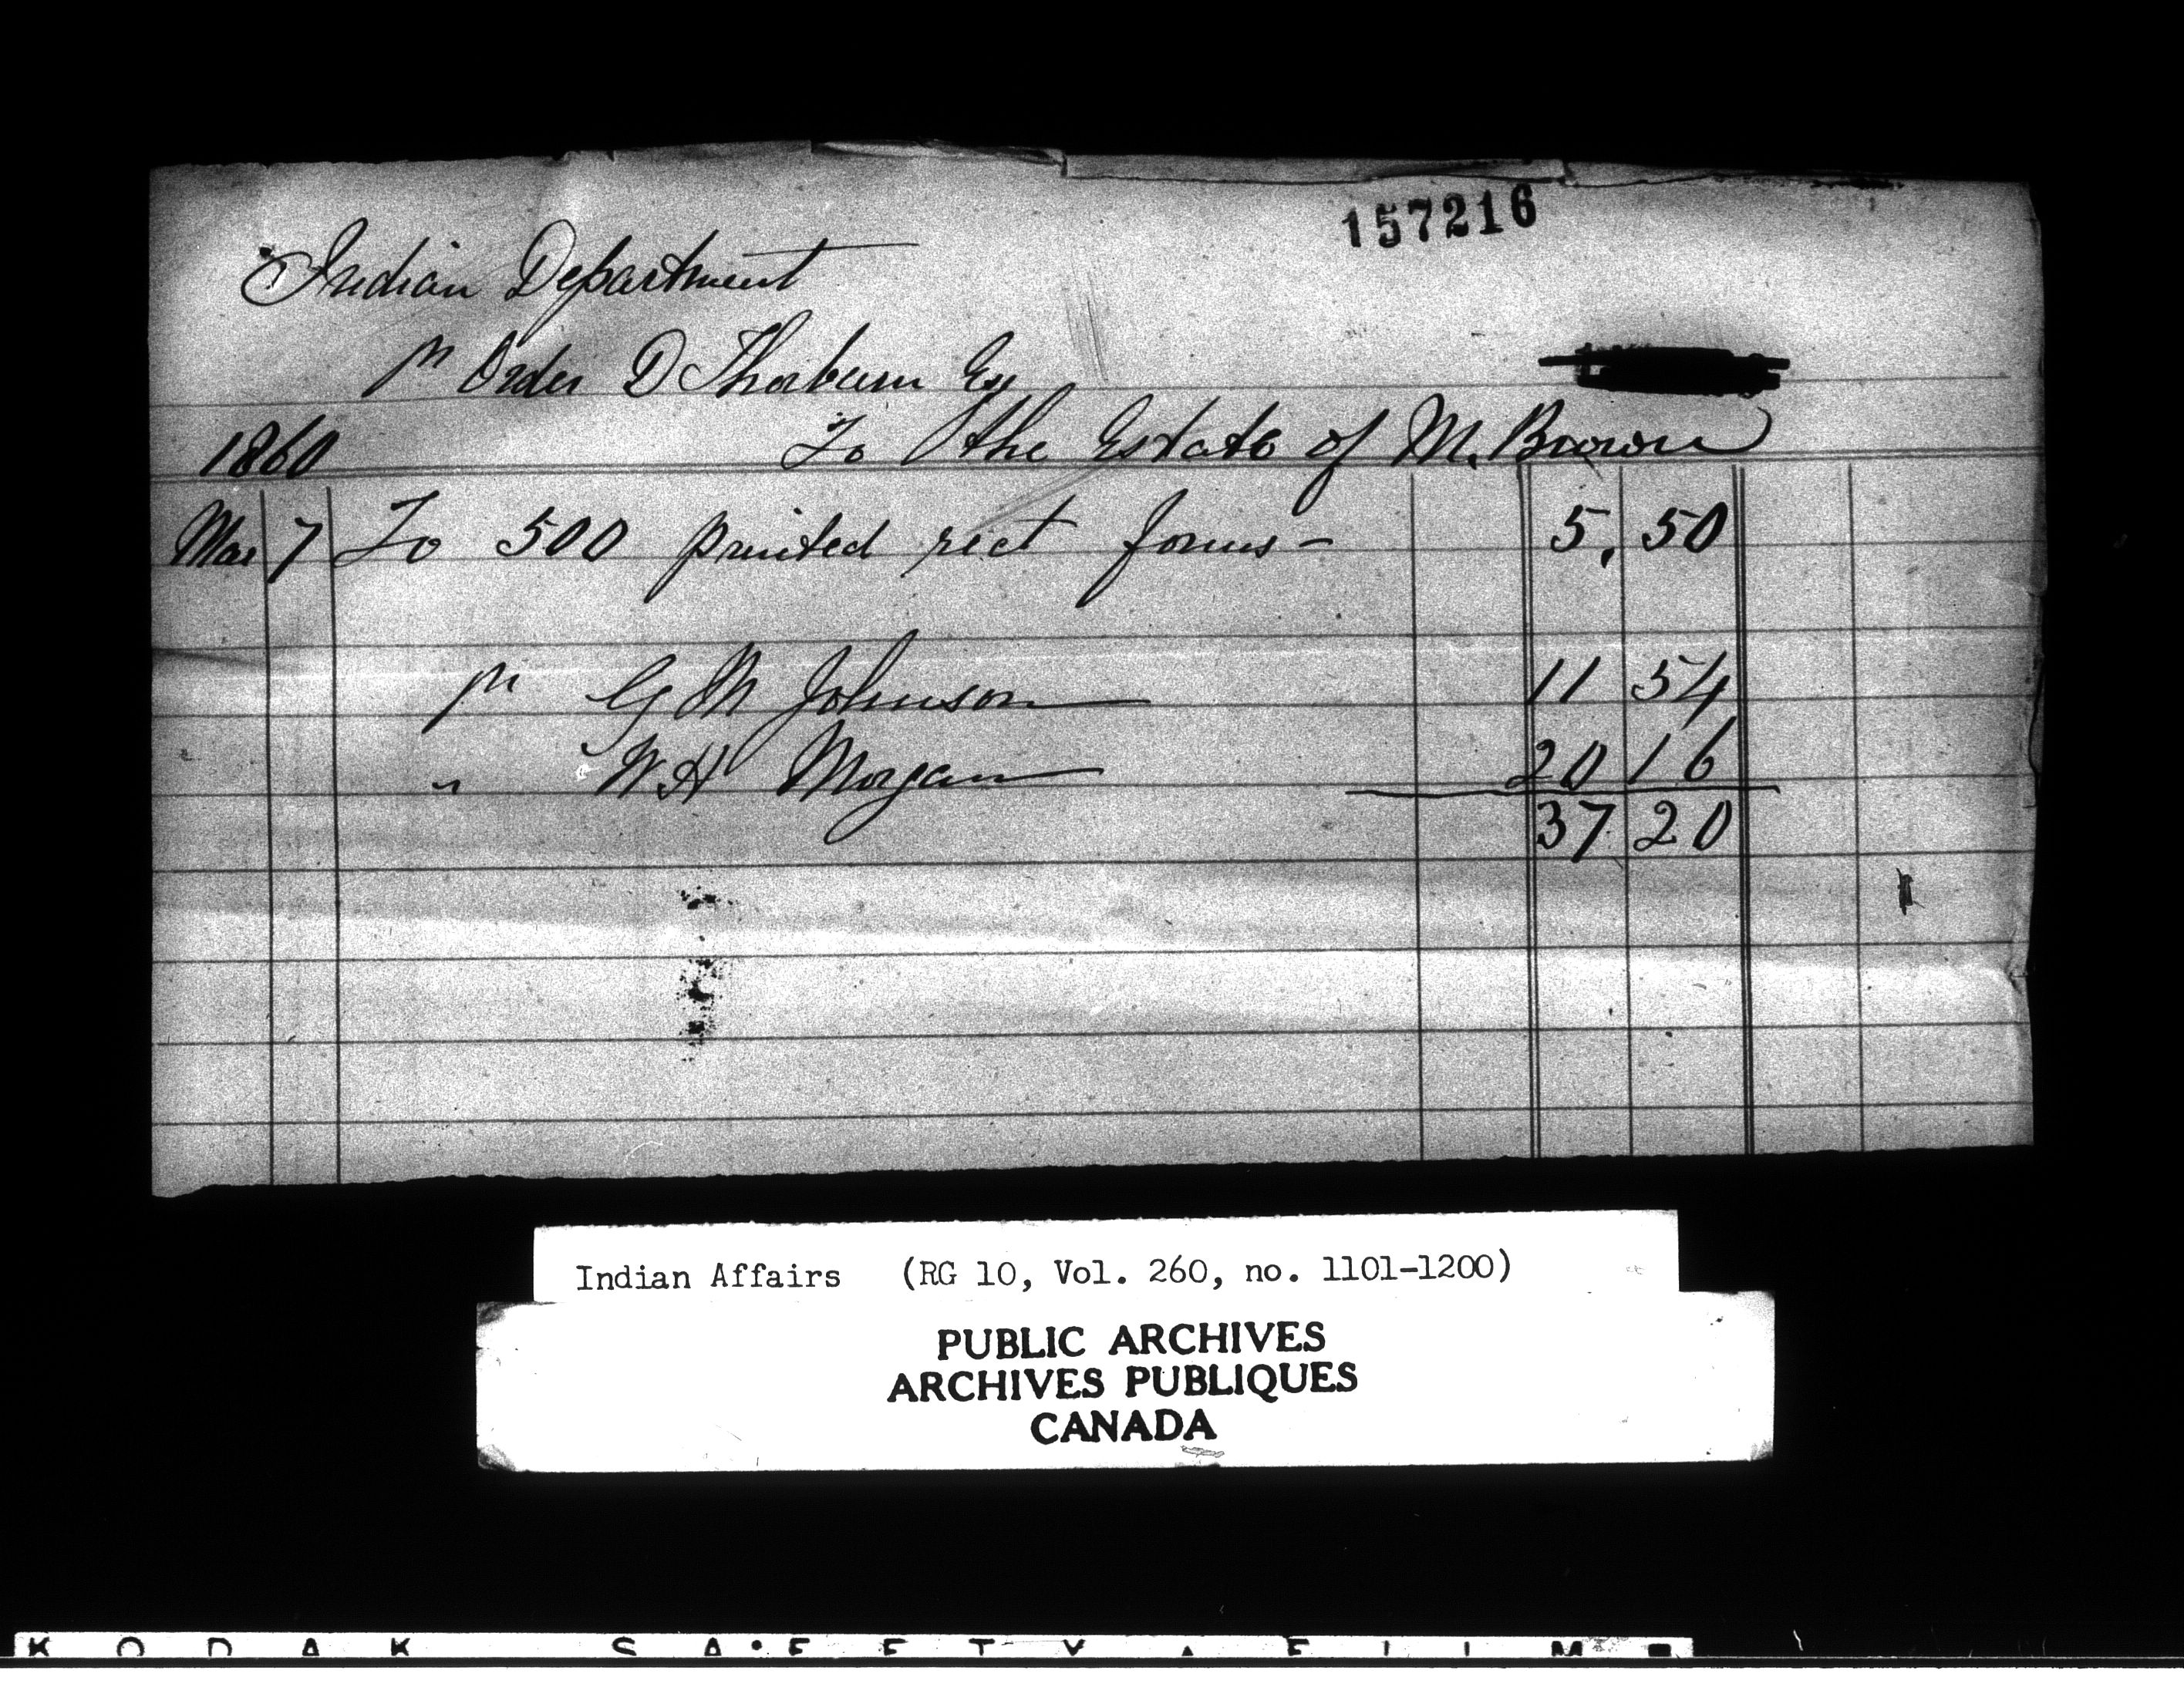 157216
Indian Department
pr Order D Thorburn Esq
1860 To the Estate of M. Brown
Mar 7 To 500 printed rect forms - 5. 50
pr G M Johnson 11 54
" W H Morgan 20 16
37 20
Indian Affairs (RG 10, Vol. 260, no. 1101-1200)
PUBLIC ARCHIVES
ARCHIVES PUBLIQUES
CANADA
KODAK SAFETY FILM